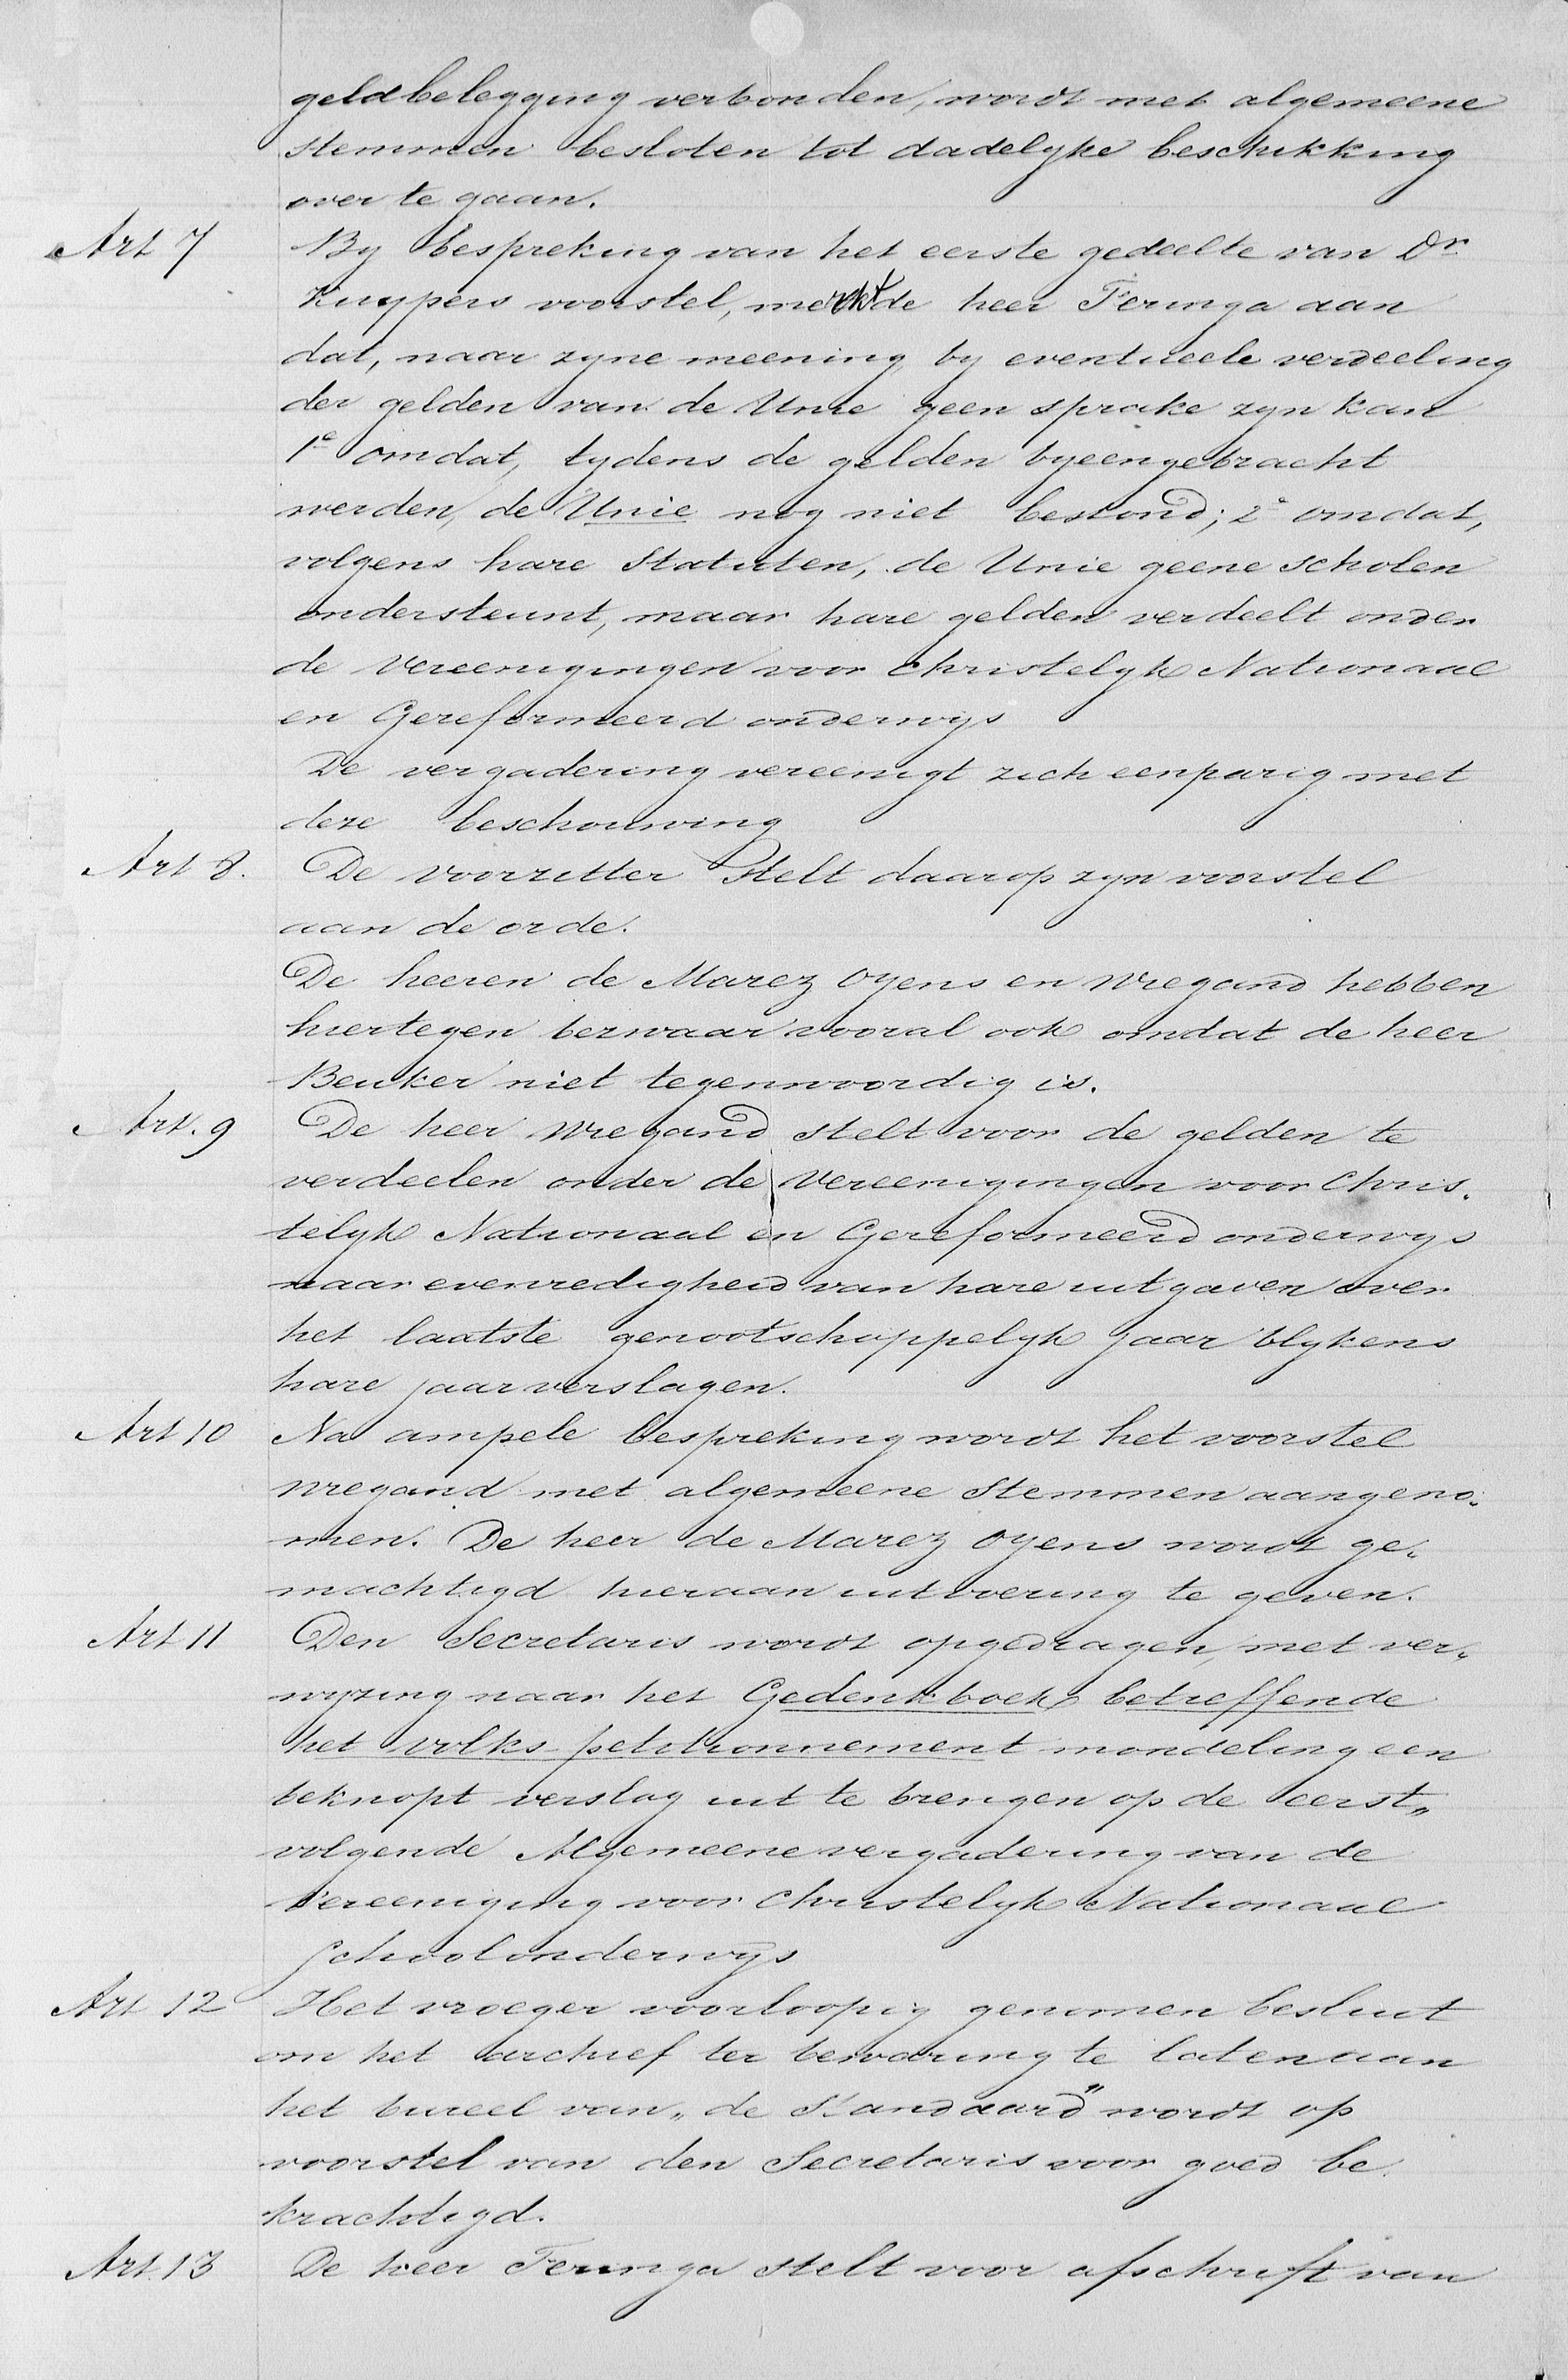 geldbelegging verbonden, wordt met algemeene
stemmen besloten tot dadelyke beschikking
over te gaan.
Art 7 By bespreking van het eerste gedeelte van Dr.
Kuypers voorstel, merkt de heer Feringa aan
dat, naar zyne meening, by eventueele verdeeling
der gelden van de Unie geen sprake zyn kan
1e omdat, tydens de gelden byeengebracht
werden, de Unie nog niet bestond; 2e omdat,
volgens hare Statuten, de Unie geene scholen
ondersteunt, maar hare gelden verdeelt onder
de Vereenigingen voor Christelyk Nationaal
en Gereformeerd onderwys
De vergadering vereenigt zich eenparig met
deze beschouwing
Art 8. De voorzitter stelt daarop zyn voorstel
aan de orde.
De heeren de Marez Oyens en Wiegand hebben
hiertegen bezwaar vooral ook omdat de heer
Beuker niet tegenwoordig is.
Art. 9 De heer Wiegand stelt voor de gelden te
verdeelen onder de Vereenigingen voor Chris-
telyk Nationaal en Gereformeerd onderwys
naar evenredigheid van hare uitgaven over
het laatste genootschappelyk jaar blykens
hare jaarverslagen.
Art 10 Na ampele bespreking wordt het voorstel
Wiegand met algemeene stemmen aangeno-
men. De heer de Marez Oyens wordt ge-
machtigd hieraan uitvoering te geven.
Art 11 Den Secretaris wordt opgedragen, met ver-
wyzing naar het Gedenkboek betreffende
het volks-petitionnement mondeling een
beknopt verslag uit te brengen op de eerst„
volgende Algemeene vergadering van de
Vereeniging voor Christelyk Nationaal
Schoolonderwys
Art 12 Het vroeger voorloopig genomen besluit
om het archief ter bewaring te laten aan
het bureel van „de Standaard” wordt op
voorstel van den Secretaris voor goed be
krachtigd.
Art. 13 De heer Feringa stelt voor afschrift van